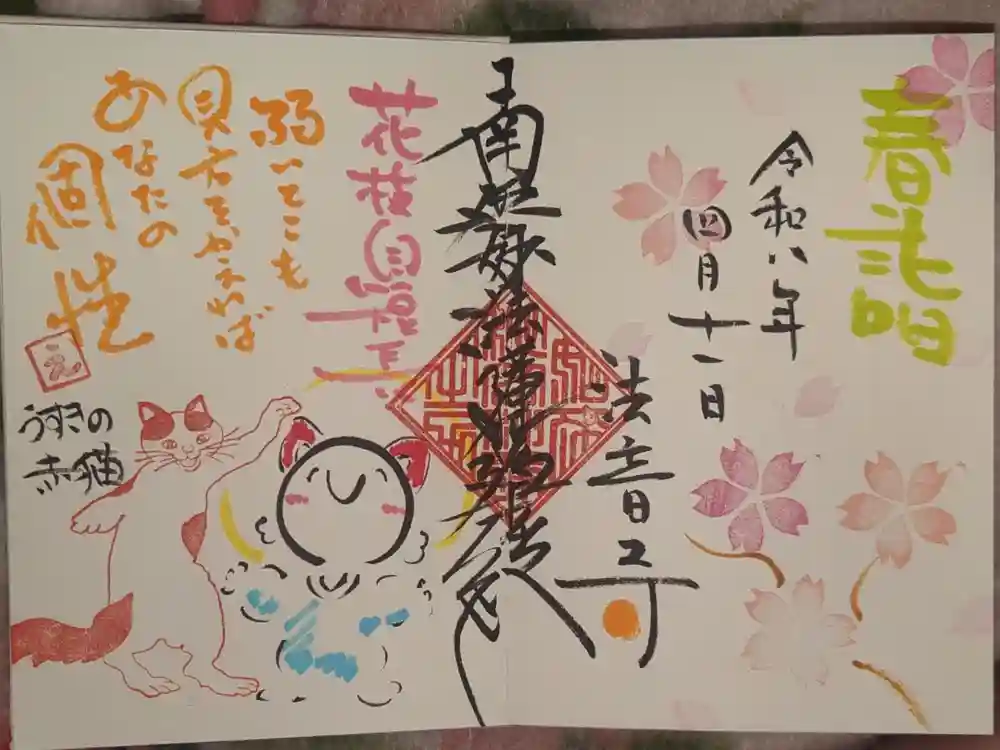 春
令和八年
四月十一日
法音寺
南無妙法蓮華経
花枝自短長
弱いとこも
見方をかえれば
あなたの
個性
え
うすきの
赤猫